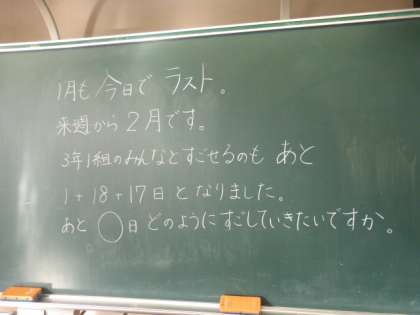 1月も今日でラスト。
来週から2月です。
3年1組のみんなとすごせるのもあと
1+18+17日となりました。
あと◯日どのようにすごしていきたいですか。